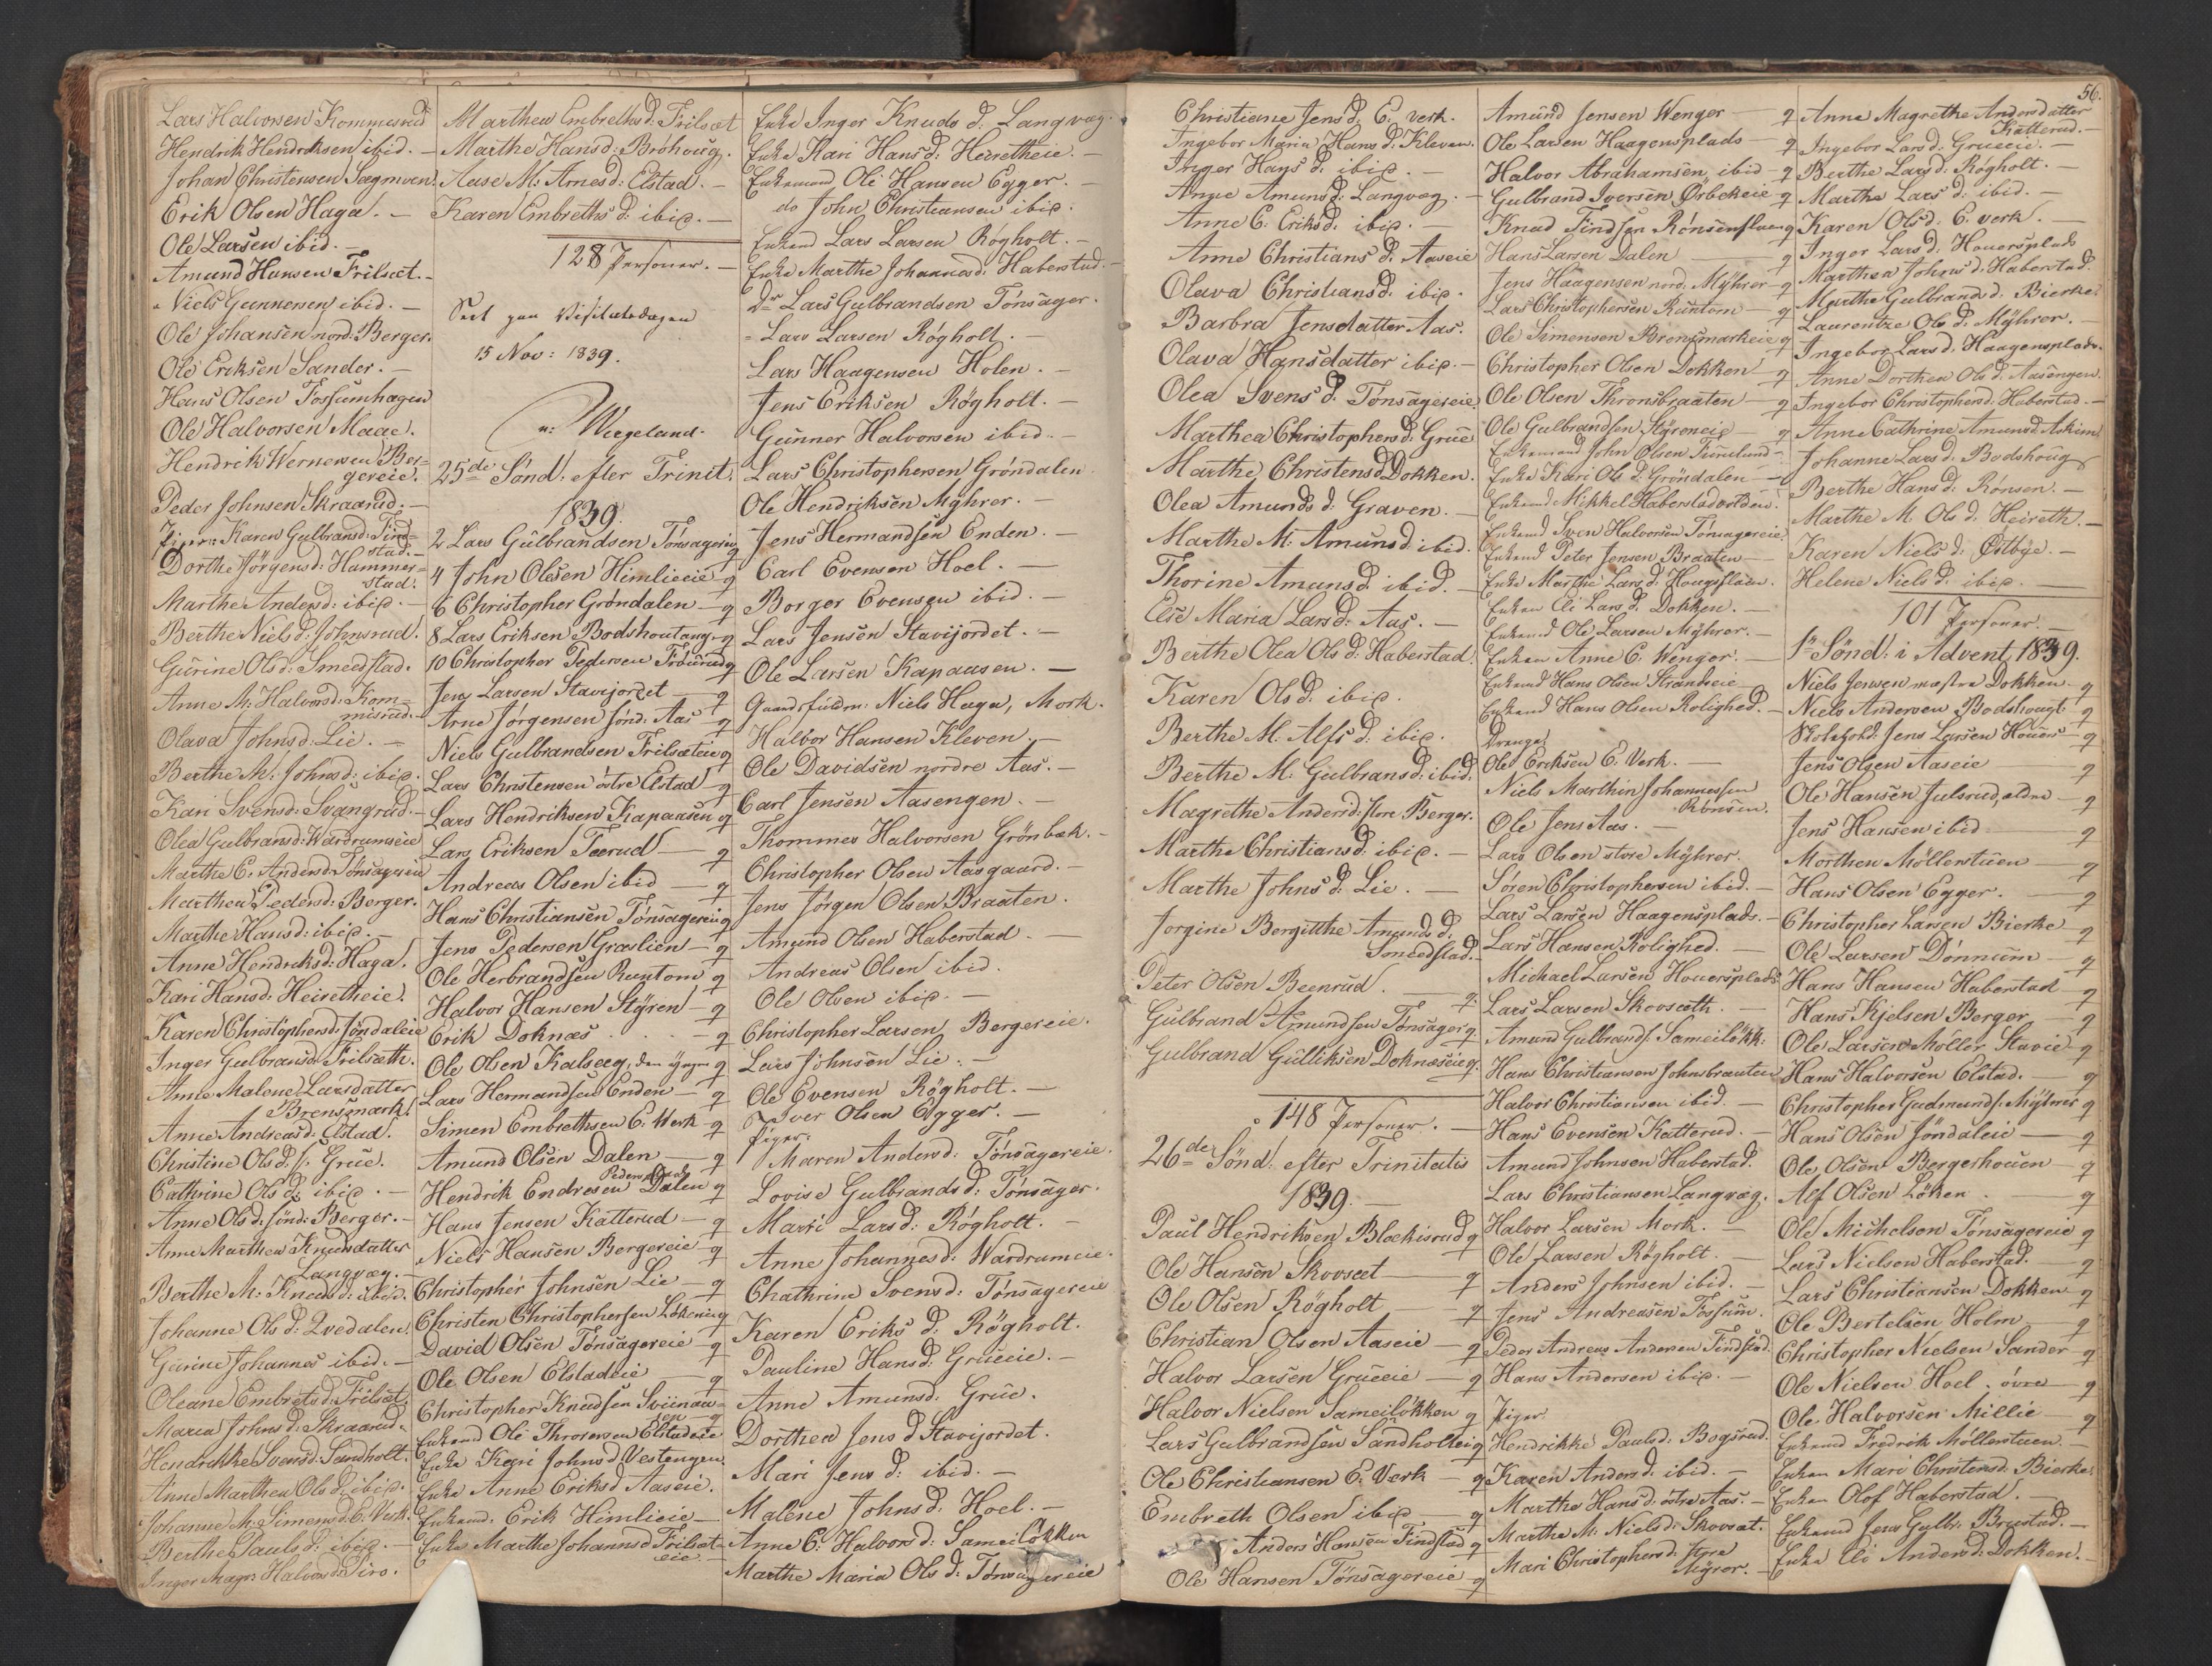 Lars Halvorsen Kommesrud
Hendrik Hendriksen ibid. —
Johan Christensen Sægmoen.
Erik Olsen Haga. —
Ole Larsen ibid. —
Amund Hansen Frilsæt. —
Niels Gunnersen ibid. —
Ole Johansen nord: Berger.
Ole Eriksen Sander. —
Hans Olsen Fossumhagen
Ole Halvorsen Maae.
Hendrik Wernersen Ber=
gereie.
Peder Johnsen Skraarud. —
Piger: Karen Gulbransd: Find=
stad. —
Dorthe Jörgensd: Hammer=
stad.
Marthe Andersd: ibid. —
Berthe Nielsd: Johnsrud.
Gurine Olsd: Smedstad.
Anne M: Halvorsd: Kom=
misrud. —
Olava Johnsd: Lie. —
Berthe M: Johnsd: ibid.
Kari Svensd: Svangrud. —
Olea Gulbransd: Wardrumseie
Marthe C: Andersd: Tönsagereie
Marthea Pedersd: Berger.
Marthe Hansd: ibid. —
Anne Hendriksd: Haga.
Kari Hansd: Heiretheie.
Karen Christophersd: Jöndaleie
Inger Gulbransd: Frilsæth.
Anne Malene Larsdatter
Brensmark.
Anne Andreasd: Elstad.
Christine Olsd: Grue.
Cathrine Olsd: ibid. —
Anne Olsd: sönd: Berger. —
Anne Marthea Knudsdatter
Langvæg. —
Berthe M: Knudsd: ibid.
Johanne Olsd: Qvedalen.
Gurine Johannes ibid. —
Oleane Embretsd: Frilsæt.
Maria Johnsd: Skraarud.
Hendrikke Svensd: Sandholt.
Anne Marthea Olsd: ibid.
Johanne M: Simensd: E: Verk.
Berthe Paulsd: ibid. —
Inger Magr: Halvorsd: Siro.
Marthea Embrethsd: Frilsæt
Marthe Hansd: Bröhoug. —
Aase M: Arnesd: Elstad. —
Karen Embrethsd: ibid. —
128 Personer. —
Seet paa Visitatsdagen
15 Nov: 1839.
n: Wergeland.
25de Sönd: efter Trinit:
1839.
2 Lars Gulbrandsen Tönsagereie q
4 John Olesen Himlieeie — q
6 Christopher Gröndalen — q
8 Lars Eriksen Bodshoutang — q
10 Christopher Pedersen Fröurud q
Jens Larsen Stavijordet — q
Arne Jörgensen sönd: Aas — q
Niels Gulbrandsen Frilsæteie q
Lars Christensen östre Elstad — q
Lars Hendriksen Kapaasen q
Lars Eriksen Taarud — q
Andreas Olsen ibid — q
Hans Christiansen Tönsagereie q
Jens Pedersen Græslien — q
Ole Herbrandsen Runtom q
Halvor Hansen Styren — q
Erik Doknæs . . — q
Ole Olsen Kalsæg, den yngre q
Lars Hermandsen Enden — q
Simen Embrethsen E: Werk — q
Amund Olsen Dalen — q
Hendrik Endresen Dalen q
Hans Jensen Katterud — q
Niels Hansen Bergereie — q
Christopher Johnsen Lie — q
Christen Christophersen Lökeneie q
David Olsen Tönsagereie — q
Ole Olsen Elstadeie — q
Christopher Knudsen Sviinaa=
sen — q
Enkemd Ole Throrsen Elstadeie
Enke Kari Johnsd Vestengen
Enke Anne Eriksd Aaseie.
Enkemd: Erik Himlieeie —
Enke Marthe Johannesd Frilsæt=
eie. —
Enke Inger Knudsd: Langvæg. —
Enke Kari Hansd: Heiretheie. —
Enkemand Ole Hansen Egger. —
do John Christiansen ibid.
Enkemd Lars Larsen Rögholt. —
Enke Marthe Johannesd: Haberstad. —
Dr Lars Gulbrandsen Tönsager.
= Lars Larsen Rögholt. —
Lars Haagensen Holen. —
Jens Eriksen Rögholt. —
Gunner Halvorsen ibid. —
Lars Christophersen Gröndalen
Ole Hendriksen Myhrer. —
Jens Hermandsen Enden. —
Carl Evensen Hoel. —
Borger Evensen ibid. —
Lars Jensen Stavijordet. —
Ole Larsen Kapaasen. —
Gaardfuldm: Niels Haga, Mork.
Halvor Hansen Kleven. —
Ole Davidsen nordre Aas. —
Carl Jensen Aasengen. —
Thommes Halvorsen Grönbæk. —
Christopher Olsen Aasgaard. —
Jens Jörgen Olsen Braaten.
Amund Olsen Haberstad. —
Andreas Olsen ibid.
Ole Olsen ibid. —
Christopher Larsen Bergereie.
Lars Johnsen Lie. —
Ole Evensen Rögholt. —
Iver Olsen Egger. —
Piger:
Maren Andersd: Tönsagereie.
Lovise Gulbrandsd: Tönsager.
Marri Larsd: Rögholt. —
Anne Johannesd: Wardrumeie.
Chathrine Svensd: Tönsagereie
Karen Eriksd: Rögholt.
Pauline Hansd: Grueeie. —
Anne Amunsd: Grue.
Dorthea Jensd Stavijordet.
Mari Jensd: ibid. —
Malene Johnsd: Hoel. —
Anne C: Halvorsd: Sameilökken
Marthe Maria Olsd: Tönsagereie
56.
Christiane Jensd: E: verk.
Ingebor Maria Hansd: Kleven.
Inger Hansd: ibid. —
Anne Amunsd: Langvæg. —
Anne C. Eriksd: ibid. —
Anne Christiansd: Aaseie
Olava Christiansd: ibid.
Barbra Jensdatter Aas.
Olava Hansdatter ibid. —
Olea Svensd: Tönsagereie.
Marthea Christophersd: Grue
Marthe Christensd Dokken.
Olea Amundsd: Graven. —
Marthe M: Amunsd: ibid.
Thorine Amunsd: ibid. —
Else Maria Larsd: Aas. —
Berthe Olea Olsd: Haberstad.
Karen Olsd: ibid.
Berthe M: Alfsd: ibid.
Berthe M: Gulbransd: ibid.
Magrethe Andersd: store Berger.
Marthe Christiansd: ibid. —
Marthe Johnsd: Lie. —
Jorgine Bergitthe Amundsd:
Smedstad. —
Peter Olsen Beenrud. — q.
Gulbrand Amundsen Tönsager q.
Gulbrand Gulliksen Doknæseie q.
148 Personer. —
26de Sönd: efter Trinitatis
1839. —
Paul Hendriksen Blækisrud q
Ole Hansen Skovsæt — q
Ole Olsen Rögholt — q
Christian Olsen Aaseie — q
Halvor Larsen Grueeie — q
Halvor Nielsen Sameilökken q
Lars Gulbrandsen Sandholteie q
Ole Christiansen E: Verk — q
Embreth Olsen ibid — q
Anders Hansen Findstad q
Ole Hansen Tönsagereie — q
Amund Jensen Wenger — q
Ole Larsen Haagensplads — q
Halvor Abrahamsen ibid — q
Gulbrand Iversen Ørbekeie q
Knud Findsen Rönsenflaen q
Hans Larsen Dalen — q
Jens Haagensen nord: Myhrer — q
Lars Christophersen Runtom — q
Ole Simensen Brensmarkeie q
Christopher Olsen Dokken — q
Ole Olsen Thronsbraaten — q
Ole Gulbrandsen Styreneie — q
Enkemand John Olsen Furulund —
Enke Kari Olsd: Gröndalen —
Enkemd: Mikkel Haberstadvolden.
Enkemd Sven Halvorsen Tönsagereie.
Enkemd Peter Jensen Braaten —
Enke Marthe Larsd: Hougsflaten.
Enken Eli Larsd: Dokken. —
Enkemd Ole Larsen Myhrer. —
Enken Anne C: Wenger. —
Enkemd Hans Olsen Strandeie —
Enkemd Hans Olsen Rolighed. —
Drenge:
Ole Eriksen E: Verk. —
Niels Marthin Johannessen
Rönsen.
Ole Jens Aas. —
Lars Olsen store Myhrer.
Sören Christophersen ibid. —
Lars Larsen Haagensplads. —
Lars Hansen Rolighed. —
Michael Larsen Houersplads
Lars Larsen Skovsæth. —
Amund Gulbrands: Sameilökk:
Hans Christiansen Johnsbraaten
Halvor Christiansen ibid. —
Hans Evensen Katterud. —
Amund Johnsen Haberstad.
Lars Christiansen Langvæg.
Halvor Larsen Mork. —
Ole Larsen Rögholt. —
Anders Johnsen ibid. —
Jens Andreasen Fossum.
Peder Andreas Andersen Findstad.
Hans Andersen ibid. —
Piger:
Hendrikke Paulsd: Bogsrud.
Karen Andersd: ibid. —
Marthe Hansd: östre Aas. —
Marthe M: Nielsd: Skovsæt.
Mari Christophersd: store
Myrer. —
Anna Magrethe Andersdatter
Katterud. —
Ingebor Larsd: Grueeie. —
Berthe Larsd: Rögholt. —
Marthe Larsd: ibid. —
Karen Olsd: E: verk. —
Inger Larsd: Houersplads
Marthea Johnsd: Haberstad.
Marthe Gulbrandsd: Bierke.
Laurentze Olsd: Myhrer. —
Ingebor Larsd: Haagensplads.
Anne Dorthea Olsd: Aasengen.
Ingebor Christophersd: Haberstad. —
Anne Cathrine Amunsd: Askim.
Johanne Larsd: Bodshoug
Berthe Hansd: Rönsen. —
Marthe M. Olsd: Heireth. —
Karen Nielsd: Östbye. —
Helene Nielsd: ibid.
101 Personer. —
1te Sönd: i Advent 1839.
Niels Jensen mæstre Dokken — q
Niels Andersen Bodshougt q
Skolehold: Jens Larsen Houers — q
Jens Olsen Aaseie — q
Ole Hansen Julsrud, eldre — q
Jens Hansen ibid — q
Morthen Möllerstuen — q
Hans Olsen Egger. — q
Christopher Larsen Bierke — q
Ole Larsen Dönnum — q
Hans Hansen Haberstad — q
Hans Kjelsen Berger — q
Ole Larsen Möller Stavie q
Hans Halvorsen Elstad. — q
Christopher Gudmunds: Myhrer q
Hans Olsen Jöndaleie — q
Ole Olsen Bergerhouen — q
Alf Olsen Löken. — q
Ole Michelsen Tönsagereie q
Lars Nielsen Haberstad. — q
Lars Christiansen Dokken — q
Ole Bertelsen Holm — q
Christopher Nielsen Sander — q
Ole Nielsen Hoel. övre — q
Ole Halvorsen Millie — q
Enkemd Fredrik Möllerstuen. —
Enken Mari Christensd: Bierke.
Enken Olof Haberstad. —
Enkemd Jens Gulbr: Brustad. —
Enke Eli Andersd: Dokken. —